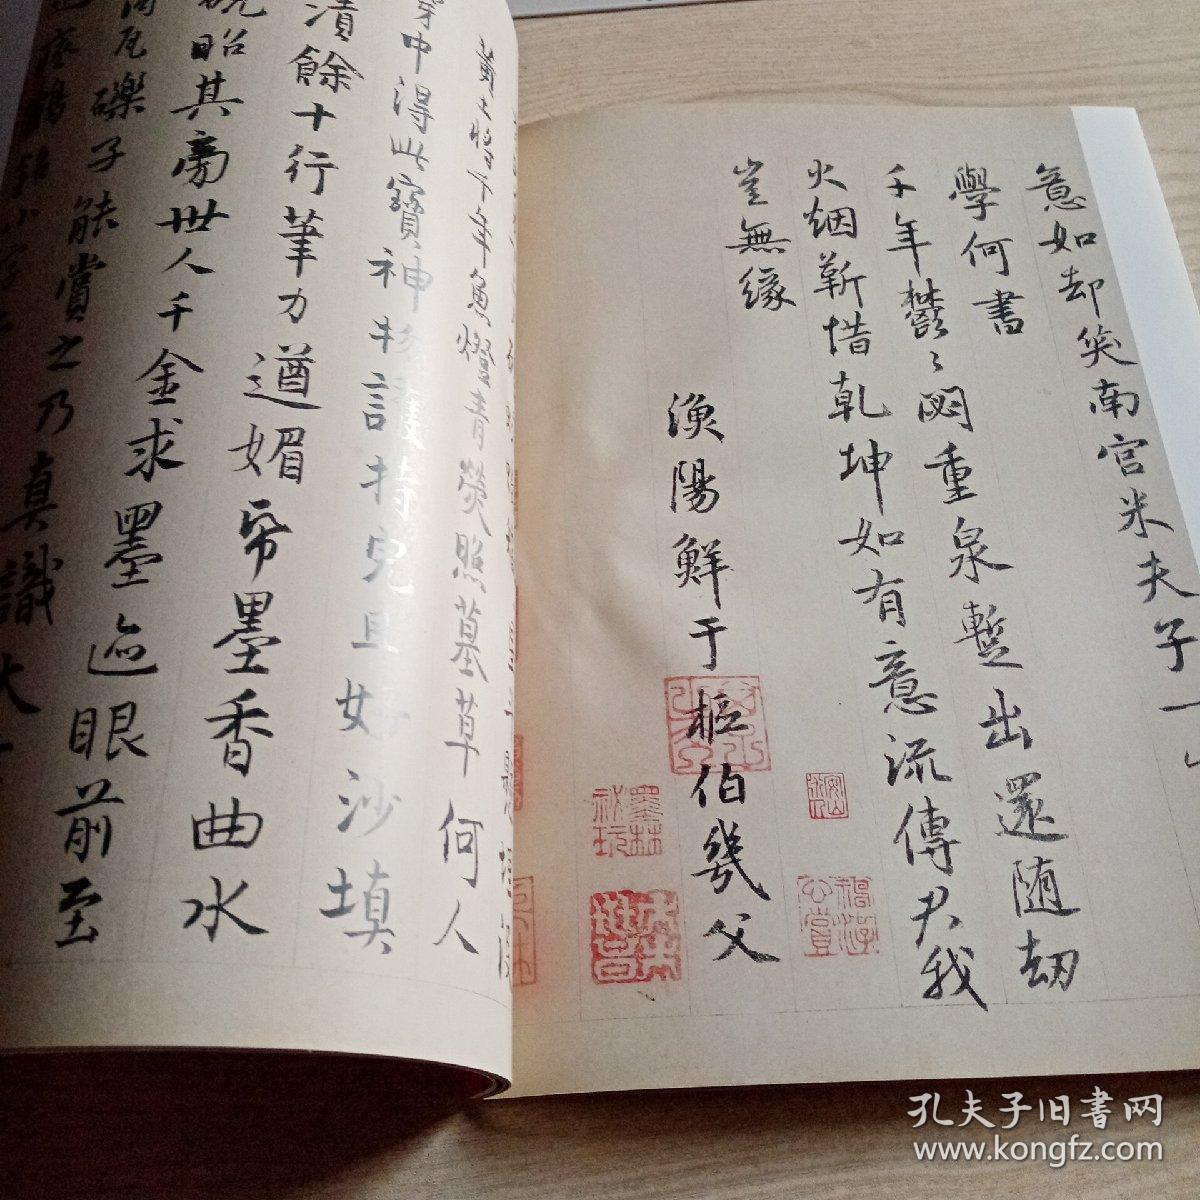 意如却笑南宫米夫子一
學何書
千年鬱〻閟重泉暫出還随劫
火烟靳惜乾坤如有意流傳尹我
豈無緣
漁陽鮮于樞伯幾父
墨林祕玩
黄土千年魚燈青熒照墓草何人
穿中得此寳神物護持完且好沙填
漬餘十行筆力遒媚帋墨香曲水
硯昭其旁世人千金求墨迹眼前至
瓦礫子能賞之乃真識大
孔夫子旧书网
www.kongfz.com